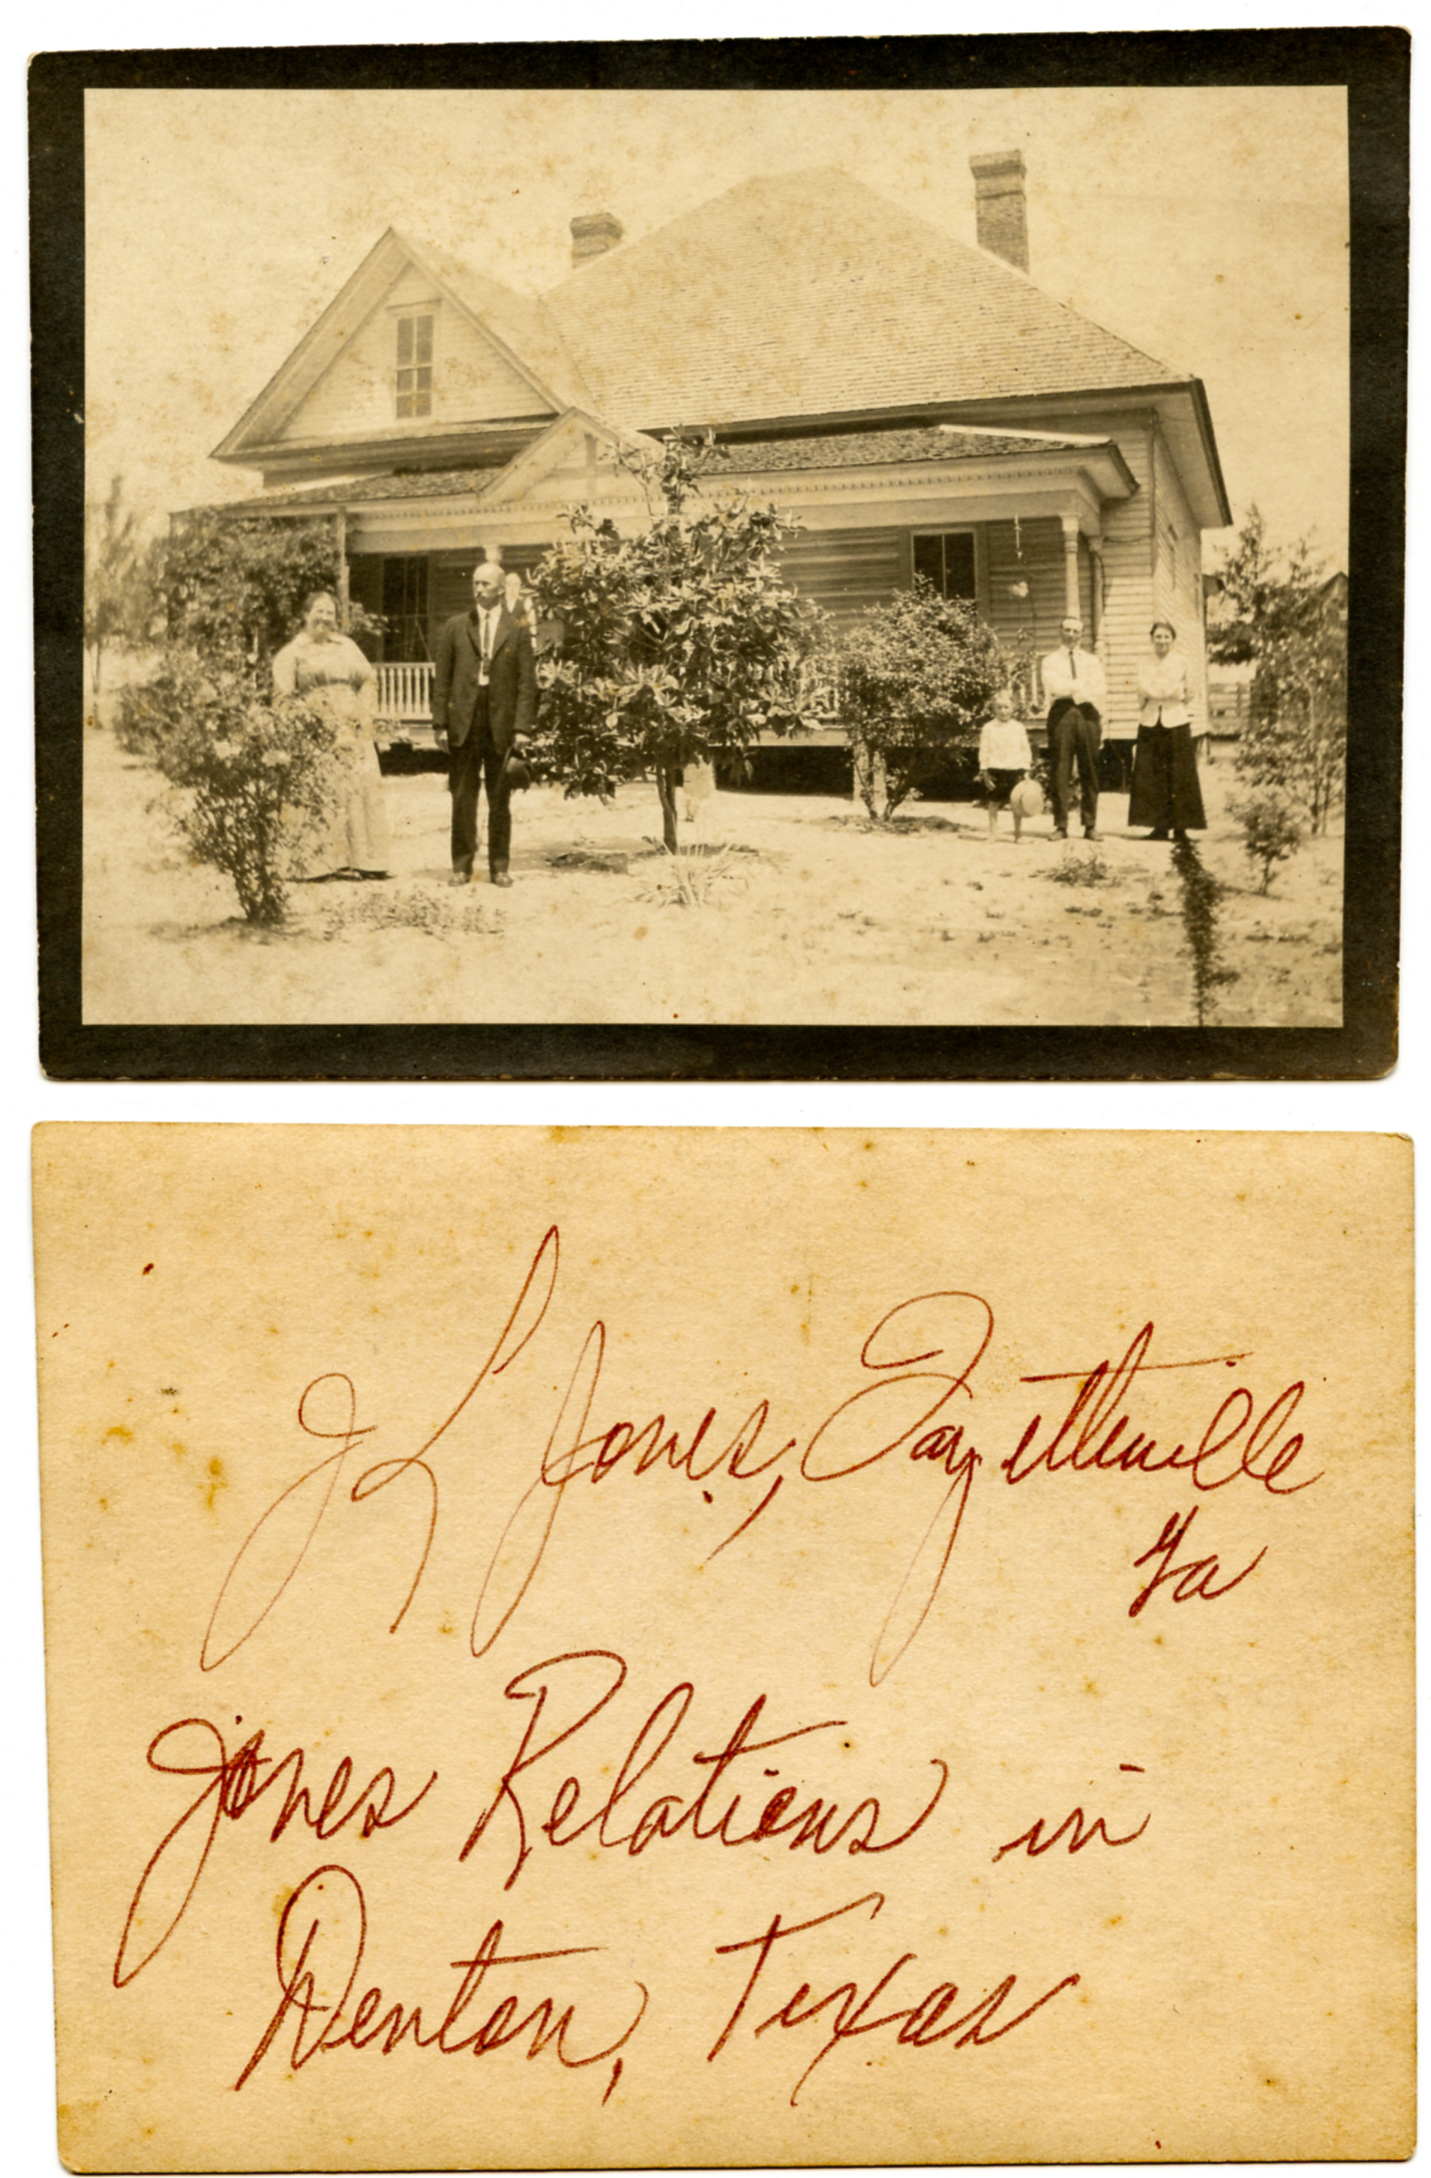 JL Jones, Fayetteville
Ga
Jones Relations in
Denton, Texas